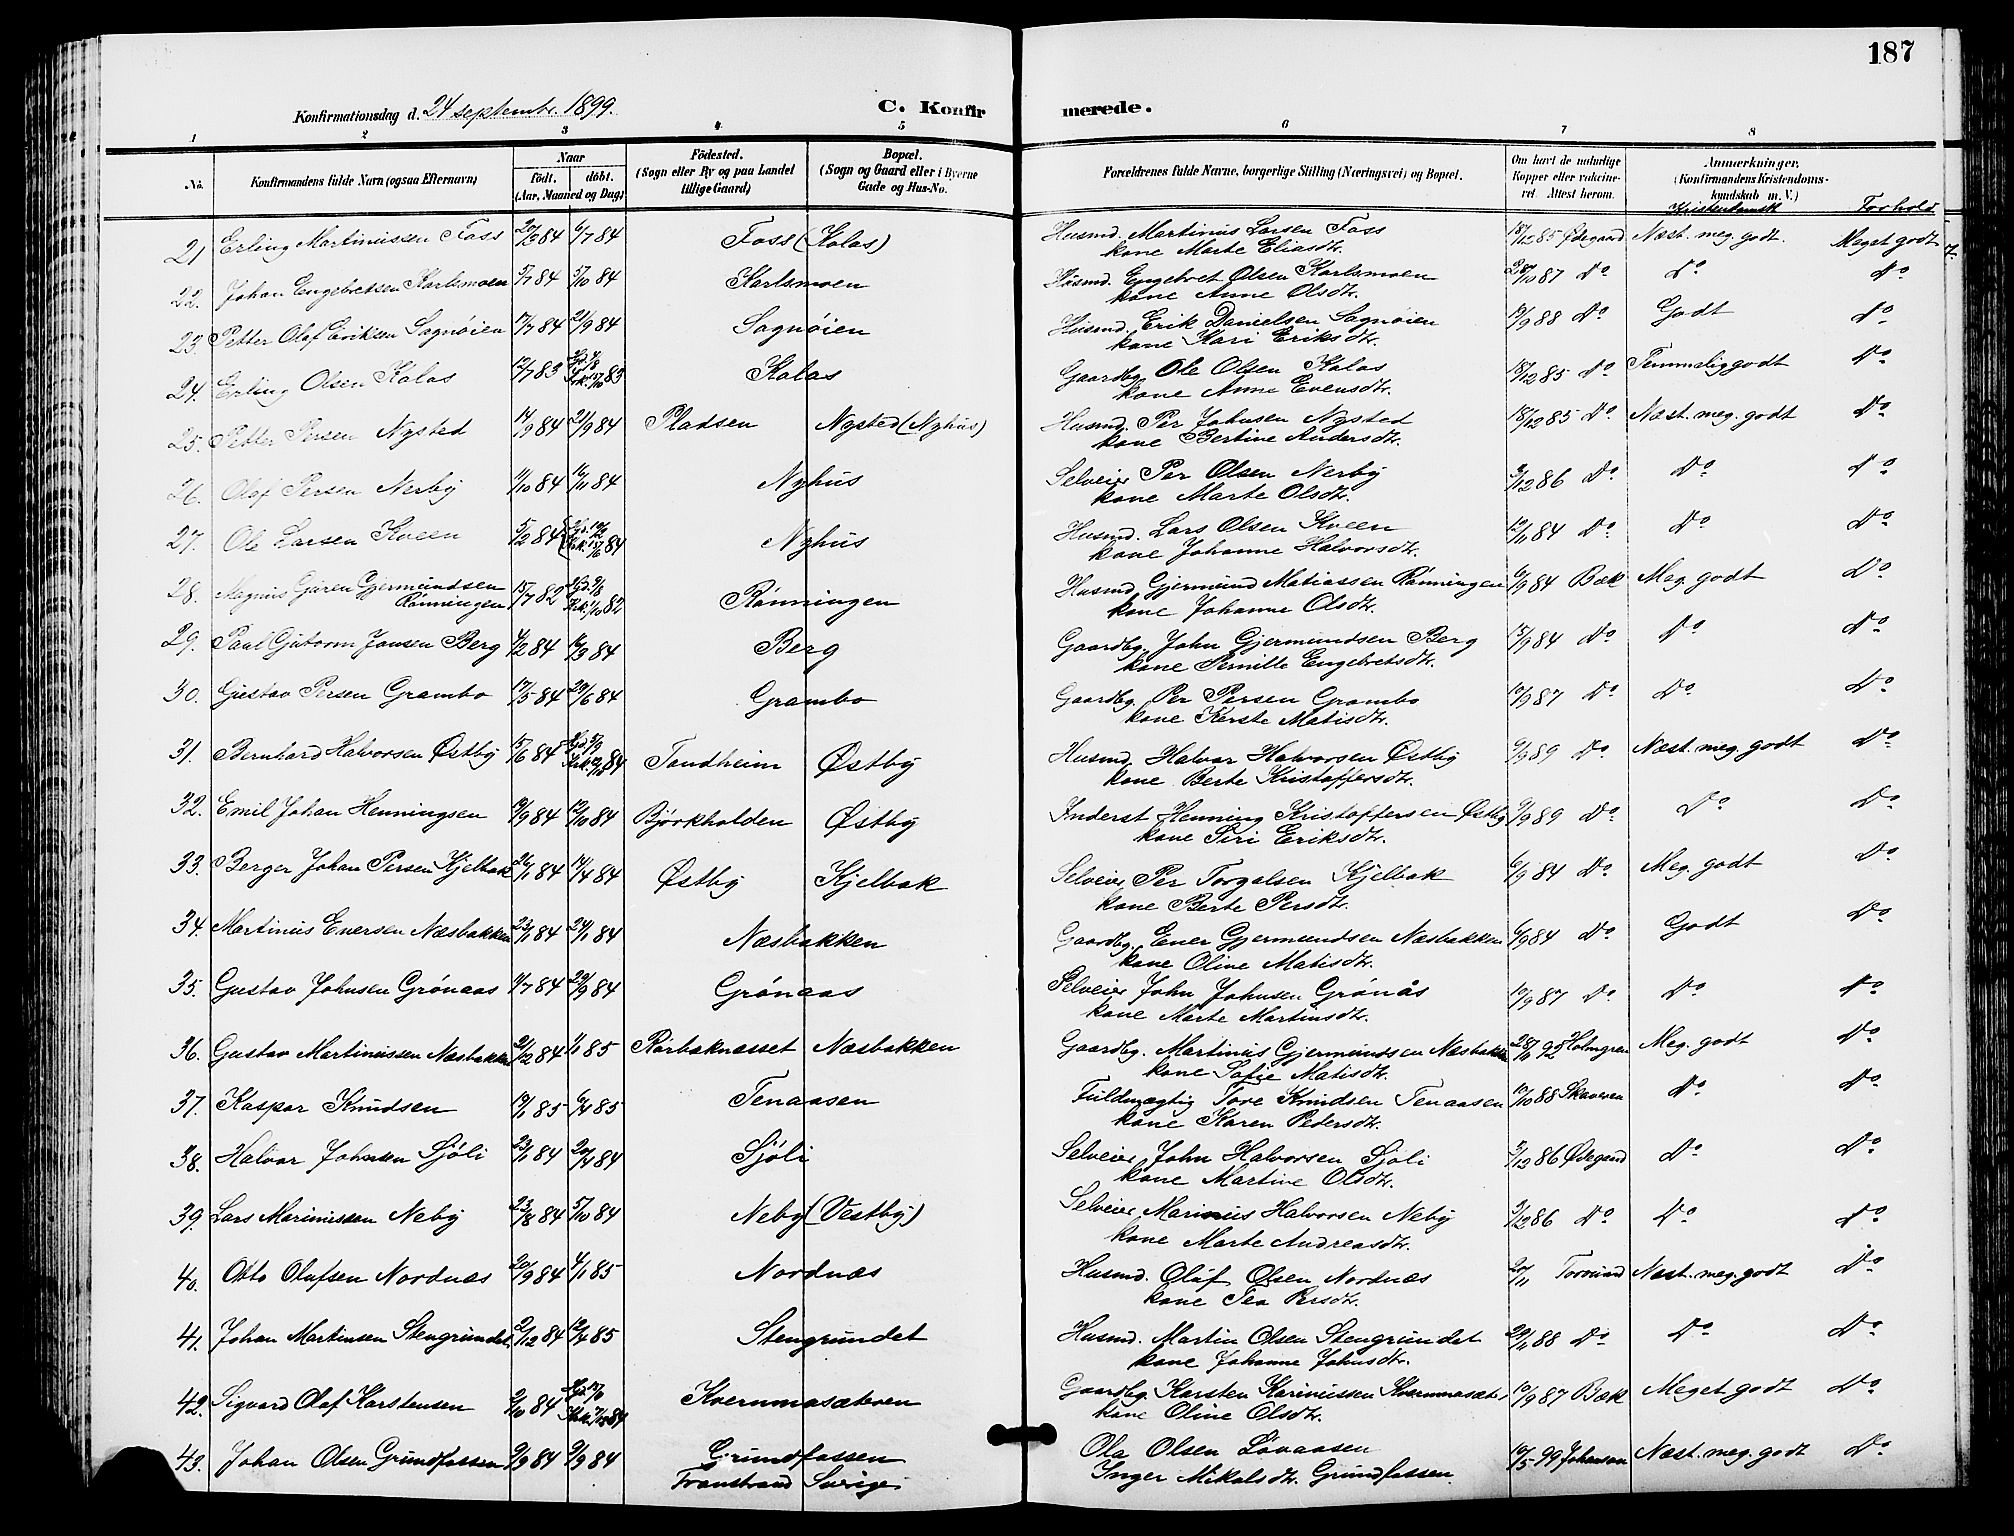 187
Konfirmationsdag d. 24 septembr. 1899.
C. Konfir merede.
1 2 3 4 5 6 7 8
No.
Konfirmandens fulde Navn (ogsaa Efternavn)
Naar
født. døbt.
(Aar, Maaned og Dag)
Födested.
(Sogn eller By og paa Landet
tillige Gaard)
Bopæl.
(Sogn og Gaard eller i Byerne
Gade og Hus-No.
Forældrenes fulde Navne, borgerlige Stilling (Næringsvei) og Bopæl.
Om havt de naturlige
Kopper eller vakcine-
ret. Attest herom.
Anmærkninger,
(Konfirmandens Kristendoms-
kundskab m. V.)
Kristendomsk Forhold
21 Erling Martinussen Foss 84 6/7 84 Foss (Kolos) Husmd. Martinus Larsen Foss 18/12 85 Ødegaard Næst. meg. godt. Meget godt
kone Marte Eliasdtr.
22. Johan Engebretsen Karlsmoen 5/7 84 5/10 84 Karlsmoen Husmd. Engebret Olsen Karlsmoen 28/10 87 Do Do Do
kone Anne Olsdtr.
23. Petter Olaf Eriksen Sagnöien 17/7 84 21/9 84 Sagnöien Husmd. Erik Danielsen Sagnöien 88 Do Godt Do
kone Kari Eriksdtr.
24. Erling Olsen Kolos 12/7 83 83 Kolos Gaardbg. Ole Olsen Kolos 18/12 85 Do Temmelig godt Do
kone Anne Evensdtr.
25. Petter Persen Nysted 14/9 84 21/9 84 Pladsen Nysted (Nyhus) Husmd. Per Johnsen Nysted 18/12 85 Do Næst. meg. godt Do
kone Bertine Andersdtr.
26. Olof Persen Nerby 1/10 84 16/11 84 Nyhus Selveier Per Olsen Nerby 3/12 86 Do Do Do
kone Marte Olsdtr.
27. Ole Larsen Kveen 5/2 84 84 Nyhus Husmd. Lars Olsen Kveen 12/11 84 Do Do Do
kone Johanne Halvorsdtr.
28. Magnus Gjøren Gjermundsen
Rønningen 15/7 82 82 Rønningen Husmd Gjermund Matiassen Rønningen 6/9 84 Bæk Meg. godt Do
kone Johanne Olsdtr.
29. Paul Gutorm Jonsen Berg 4/2 84 16/3 84 Berg Gaardbg. John Gjermundsen Berg 13/9 84 Do Do Do
kone Pernille Engebretsdtr.
30. Gustav Persen Grambo 17/5 84 29/6 84 Grambo Gaardbg. Per Persen Grambo 10/9 87 Do Do Do
kone Kerste Matisdtr.
31. Bernhard Halvorsen Østby 15/6 84 84 Tandheim Østby Husmd. Halvor Halvorsen Østby 9/9 89 Do Næst. meg. godt Do
kone Berte Kristoffersdtr.
32. Emil Johan Henningsen 9/9 84 12/10 84 Bjørkholden Østby Inderst Henning Kristoffersen Østby 9/9 89 Do Do Do
kone Siri Eriksdtr.
33. Berger Johan Persen Kjelbak 26/1 84 14/4 84 Østby Kjelbak Selveier Per Torgalsen Kjelbak 6/9 84 Do Meg. godt Do
kone Berte Persdtr.
34. Martinus Enersen Næsbakken 23/1 84 24/1 84 Næsbakken Gaardbg. Ener Gjermundsen Næsbakken 6/9 84 Do Godt Do
kone Oline Matisdtr.
35. Gustav Johnsen Grönaas 11/7 84 29/9 84 Grönaas Selveier John Johnsen Grönås 10/9 87 Do Do Do
kone Marte Martinsdtr.
36. Gustav Martinussen Næsbakken 21/12 84 1/1 85 Rörbaknæsset Næsbakken Gaardbg. Martinus Gjermundsen Næsbakken 28/10 95 Holmgren Meg. godt Do
kone Sofie Matisdtr.
37. Kaspar Knudsen 19/1 85 6/4 85 Tenaasen Fuldmægtig Tove Knudsen Tenaasen 12/10 88 Skaveren Do Do
kone Karen Pedersdtr.
38. Halvor Johnsen Sjöli 23/1 84 20/4 84 Sjöli Selveier John Halvorsen Sjöli 3/12 86 Ødegaard Do Do
kone Martine Olsdtr.
39. Lars Marinussen Neby 23/8 84 5/10 84 Neby (Vestby) Selveier Marinus Halvorsen Neby 3/12 86 Do Do Do
kone Marte Andreasdtr.
40. Otto Olufsen Nordnæs 20/9 84 4/1 85 Nordnæs Husmd. Oluf Olsen Nordnæs 20/11 Næst. meg. godt Do
kone Tea Persdtr.
41. Johan Martinsen Stengrundet 2/12 84 12/4 85 Stengrundet Husmd. Martin Olsen Stengrundet 29/11 88 Do Do Do
kone Johanne Johnsdtr.
42. Sigvard Olaf Karstensen 2/10 84 84 Kvernmosæteren Gaardbg. Karsten Karinussen Kvernmosæt 10/9 87 Bæk Meget godt Do
kone Oline Olsdtr.
43. Johan Olsen Grundfossen 2/9 84 9/9 84 Grundfossen Ola Olsen Lövaasen 10/5 99 Johansson Næst. meg. godt Do
Transtrand Sverige Inger Mikalsdtr. Grundfossen.